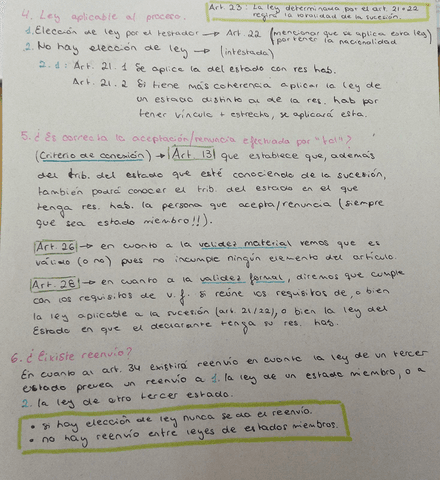 Art. 23: La ley determinada por el art. 21 o 22
regirá la totalidad de la sucesión.
4. Ley aplicable al proceso.
1. Elección de ley por el testador → Art. 22 (mencionar que se aplica esta ley)
por tener la nacionalidad
2. No hay elección de ley → (intestada)
2.1: Art. 21.1 Se aplica la del estado con res hab.
Art. 21.2 Si tiene más coherencia aplicar la ley de
un estado distinto al de la res. hab por
tener vínculo + estrecho, se aplicará esta.
5. ¿Es correcta la aceptación/renuncia efectuada por "tal"?
(Criterio de conexión) → Art. 13 que establece que, además
del trib. del estado que esté conociendo de la sucesión,
también podrá conocer el trib. del estado en el que
tenga res. hab. la persona que acepta/renuncia (siempre
que sea estado miembro!!).
Art. 26 → en cuanto a la validez material vemos que es
válido (o no) pues no incumple ningún elemento del artículo.
Art. 28 → en cuanto a la validez formal, diremos que cumple
con los requisitos de v.f. si reúne los requisitos de, o bien
la ley aplicable a la sucesión (art. 21/22), o bien la ley del
Estado en que el declarante tenga su res. hab.
6. ¿Existe reenvío?
En cuanto al art. 34 existirá reenvío en cuanto la ley de un tercer
estado prevea un reenvío a 1. la ley de un estado miembro, o a
2. la ley de otro tercer estado.
• Si hay elección de ley nunca se da el reenvío.
• no hay reenvío entre leyes de estados miembros.